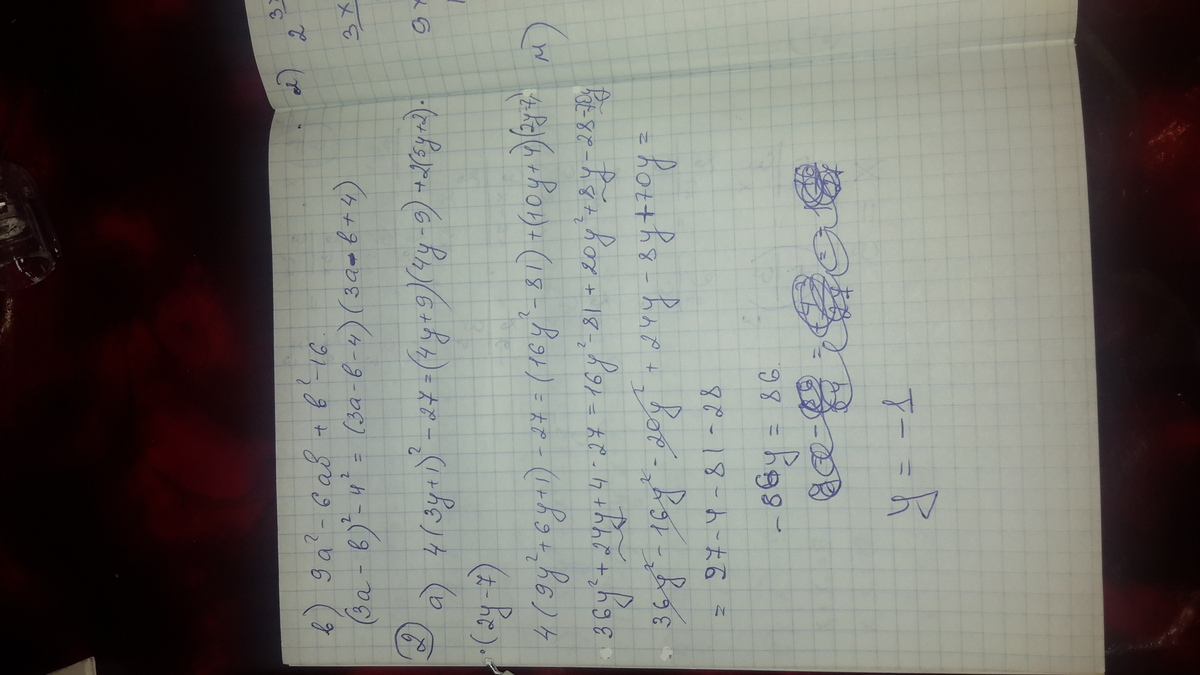 в) 9a² - 6ab + b² - 16.
(3a - b)² - 4² = (3a - b - 4)(3a - b + 4)
② a) 4(3y+1)² - 27 = (4y+9)(4y-9) + 2(5y+2)·
·(2y-7)
4(9y²+6y+1) - 27 = (16y² - 81) + (10y+4)(2y-7)
36y² + 24y + 4 - 27 = 16y² - 81 + 20y² + 8y - 28 - 70y
36y² - 16y² - 20y² + 24y - 8y + 70y =
= 27 - 4 - 81 - 28
-86y = 86.
y = -1
2) 2
3x
9x
м)